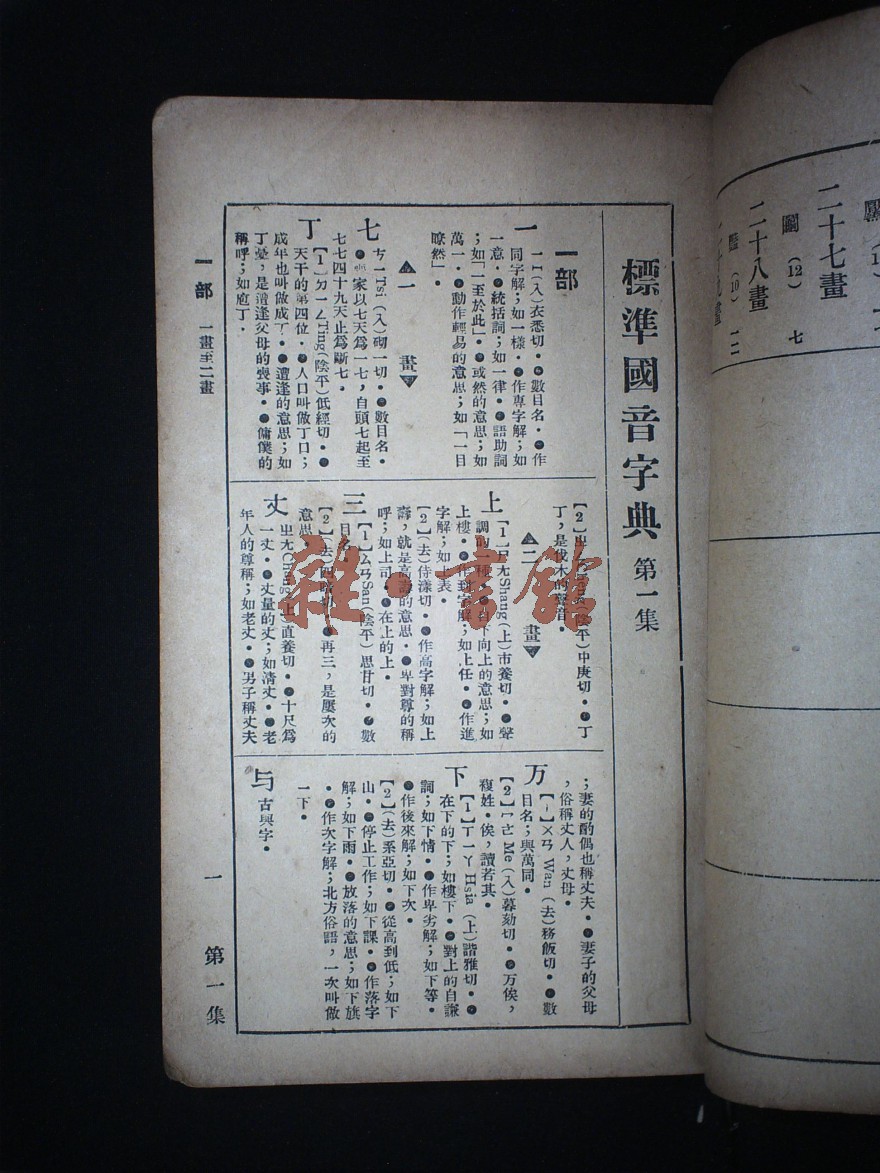 標準國音字典 第一集
一部
一 ㄧI(入)衣悉切・●數目名・●作
同字解；如一樣・●作專字解；如
一意・●統括詞；如一律・●語助詞
；如「一至於此」・●或然的意思；如
萬一・●動作輕易的意思；如「一目
瞭然」・
一畫
七 ㄘㄧTsi(入)砌一切・●數目名・
●家以七天爲一七，自頭七起至
七七四十九天止爲斷七・
丁【1】ㄉㄧㄥTing(陰平)低經切・●
天干的第四位・●人口叫做丁口；
成年也叫做成丁・●遭逢的意思；如
丁憂，是遭逢父母的喪事・●傭僕的
稱呼；如庖丁・
【2】ㄓㄥ(陰平)中庚切・●丁
丁，是伐木的聲音・
二畫
上【1】ㄕㄤShang(上)市養切・●聲
調的一種・●自下向上的意思；如
上樓・●作到字解；如上任・●作進
字解；如上表・
【2】(去)侍漾切・●作高字解；如上
壽，就是高壽的意思・●卑對尊的稱
呼；如上司・●在上的上・
三【1】ㄙㄢSan(陰平)思甘切・●數
目名・
【2】(去)四暗切・●再三，是屢次的
意思・
丈 ㄓㄤChang(上)直養切・●十尺爲
一丈・●丈量的丈；如清丈・●老
年人的尊稱；如老丈・●男子稱丈夫
；妻的配偶也稱丈夫・●妻子的父母
，俗稱丈人，丈母・
万【1】ㄨㄢ Wan(去)務飯切・●數
目名；與萬同・
【2】ㄇㄜ Me(入)暮刻切・●万俟，
複姓・俟，讀若其・
下【1】ㄒㄧㄚHsia(上)諧雅切・●
在下的下；如樓下・●對上的自謙
詞；如下情・●作卑劣解；如下等・
●作後來解；如下次・
【2】(去)系亞切・●從高到低；如下
山・●停止工作；如下課・●作落字
解；如下雨・●放落的意思；如下旗
・●作次字解；北方俗語，一次叫做
一下・
与 古與字・
一部 一畫至二畫
一
第一集
二十七畫
(12) 七
二十八畫
(10) 一二
雜・書館